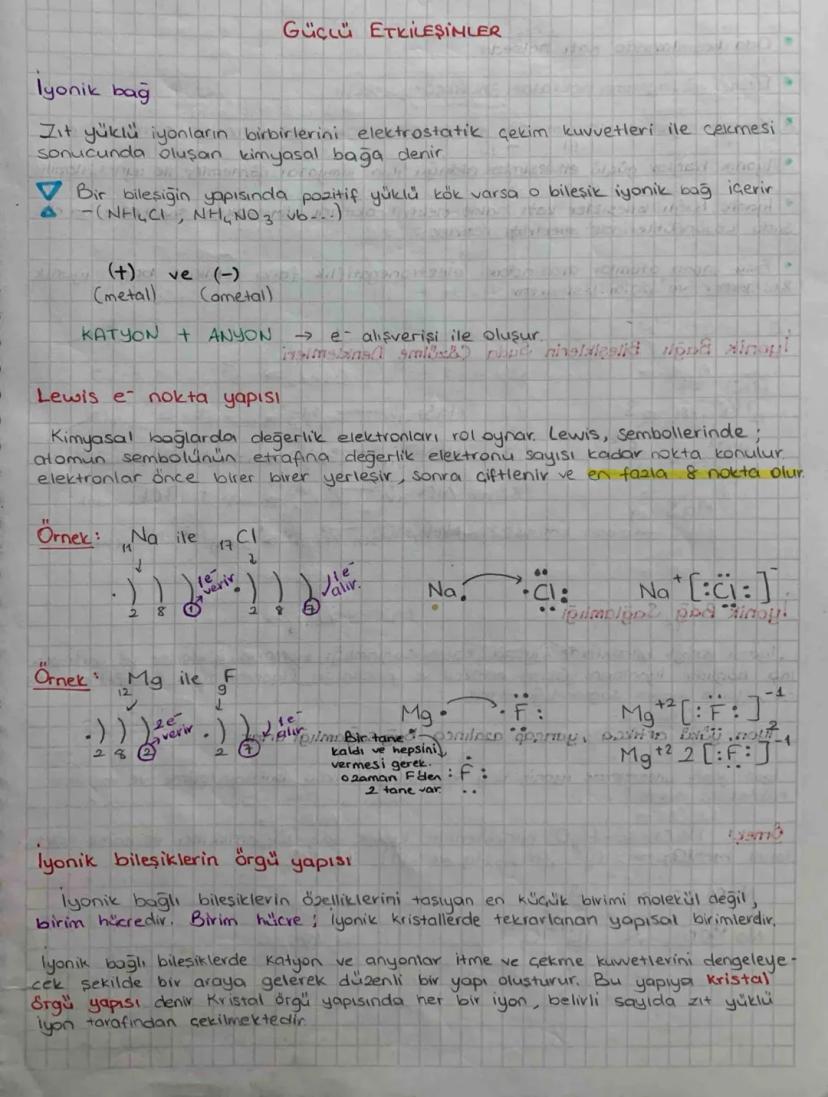 GÜÇLÜ ETKİLEŞİMLER
İyonik bağ
Zıt yüklü iyonların birbirlerini elektrostatik çekim kuvvetleri ile çekmesi
sonucunda oluşan kimyasal bağa denir
Bir bileşiğin yapısında pozitif yüklü kök varsa o bileşik iyonik bağ içerir
-(NH4Cl, NH4NO3 vb...)
(+) ve (-)
(metal) (ametal)
KATYON + ANYON → e- alışverişi ile oluşur.
Lewis e- nokta yapısı
Kimyasal bağlarda değerlik elektronları rol oynar. Lewis, sembollerinde ;
atomun sembolünün etrafına değerlik elektronu sayısı kadar nokta konulur.
elektronlar önce birer birer yerleşir, sonra çiftlenir ve en fazla 8 nokta olur.
Örnek: 11Na ile 17Cl
2 8 1 1e- verir. 2 8 7 1e- alır. Na. .Cl: Na+ [:Cl:]-
Örnek: 12Mg ile 9F
2 8 2 2e- verir 2 7 1e- alır Mg. .F: Mg+2 [:F:]-1 2
Bir tane
kaldı ve hepsini
vermesi gerek.
o zaman F'den :F: Mg+2 2 [:F:]-1
2 tane var.
İyonik bileşiklerin örgü yapısı
İyonik bağlı bileşiklerin özelliklerini taşıyan en küçük birimi molekül değil,
birim hücredir. Birim hücre ; iyonik kristallerde tekrarlanan yapısal birimlerdir.
İyonik bağlı bileşiklerde katyon ve anyonlar itme ve çekme kuvvetlerini dengeleye-
cek şekilde bir araya gelerek düzenli bir yapı oluşturur. Bu yapıya kristal
örgü yapısı denir. Kristal örgü yapısında her bir iyon, belirli sayıda zıt yüklü
iyon tarafından çekilmektedir.